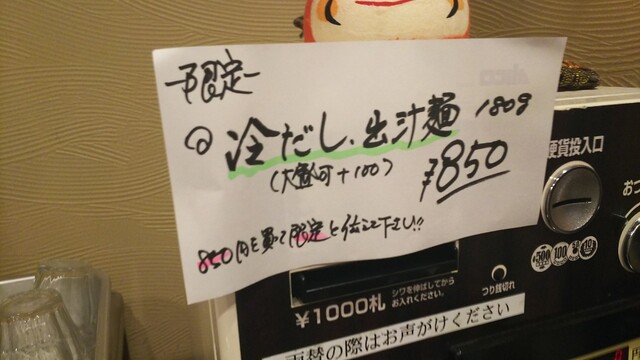 -限定-
◎冷だし、出汁麺 180g
(大盛可+100)
¥850
850円を買って限定と伝えて下さい!!
硬貨投入口
500 100 50 10
シワを伸ばしてから
お入れください。
¥1000札
つり銭切れ
両替の際はお声がけください
おつ